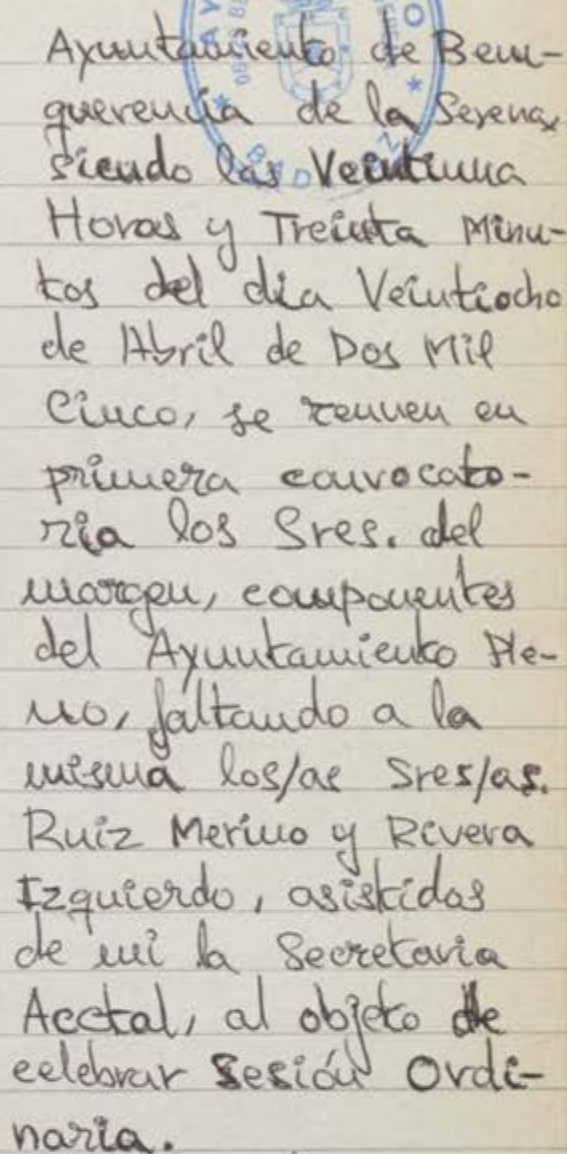 Ayuntamiento de Ben-
querencia de la Serena,
siendo las Veintiuna
Horas y Treinta Minu-
tos del dia Veintiocho
de Abril de Dos Mil
Cinco, se reunen en
primera convocato-
ria los Sres. del
margen, componentes
del Ayuntamiento Ple-
no, faltando a la
misma los/as Sres/as.
Ruiz Merino y Rivera
Izquierdo, asistidos
de mi la Secretaria
Acctal, al objeto de
celebrar Sesión Ordi-
naria.